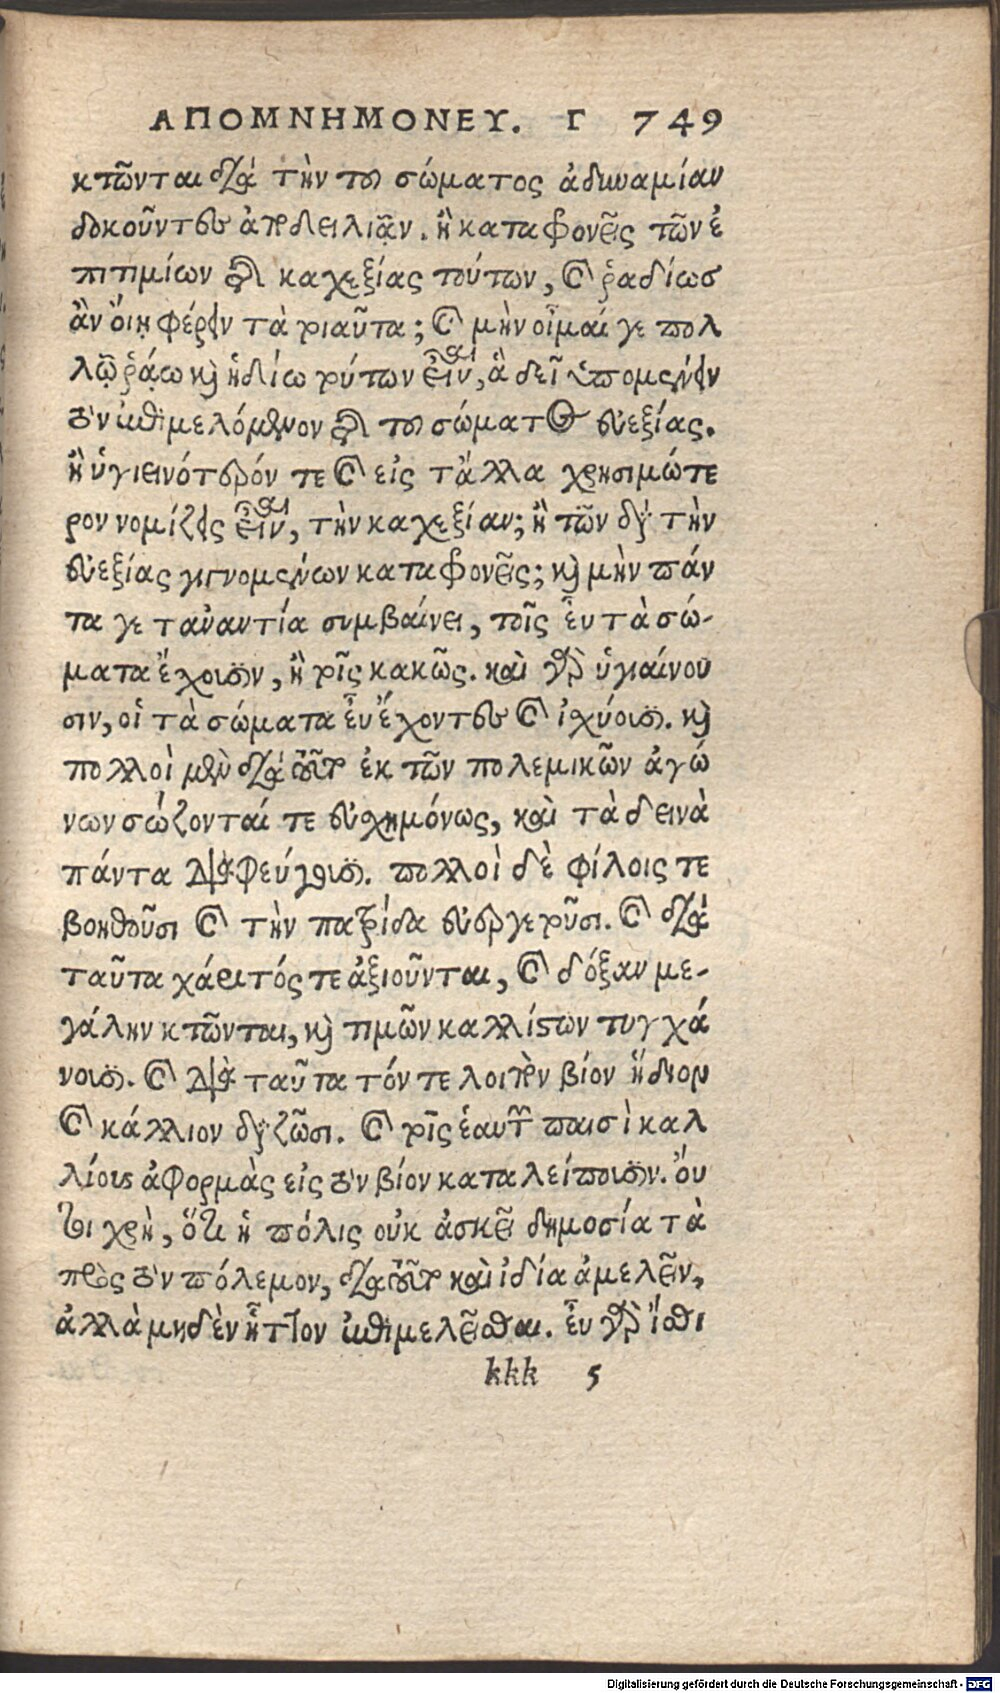 ΑΠΟΜΝΗΜΟΝΕΥ. Γ 749
κτῶνται διὰ τὴν τοῦ σώματος ἀδυναμίαν
δοκοῦντες ἀποδειλιᾷν. ἢ καταφρονεῖς τῶν ἐ
πιτιμίων τῆς καχεξίας τούτων, καὶ ῥαδίως
ἂν οἴει φέρειν τὰ τοιαῦτα; καὶ μὴν οἶμαί γε πολ
λῷ ῥᾴω καὶ ἡδίω τούτων εἶναι, ἃ δεῖ ὑπομένειν
τὸν ἐπιμελόμενον τῆς τοῦ σώματος εὐεξίας.
ἢ ὑγιεινότερόν τε καὶ εἰς τἄλλα χρησιμώτε
ρον νομίζεις εἶναι, τὴν καχεξίαν; ἢ τῶν διὰ τὴν
εὐεξίας γιγνομένων καταφρονεῖς; καὶ μὴν πάν
τα γε τἀναντία συμβαίνει, τοῖς εὖ τὰ σώ-
ματα ἔχουσιν, ἢ τοῖς κακῶς. καὶ γὰρ ὑγιαίνου
σιν, οἱ τὰ σώματα εὖ ἔχοντες καὶ ἰσχύουσι. καὶ
πολλοὶ μὲν διὰ τοῦτο ἐκ τῶν πολεμικῶν ἀγώ
νων σώζονταί τε εὐσχημόνως, καὶ τὰ δεινὰ
πάντα διαφεύγουσι. πολλοὶ δὲ φίλοις τε
βοηθοῦσι καὶ τὴν πατρίδα εὐεργετοῦσι. καὶ διὰ
ταῦτα χάριτός τε ἀξιοῦνται, καὶ δόξαν με-
γάλην κτῶνται, καὶ τιμῶν καλλίστων τυγχά
νουσι. καὶ διὰ ταῦτα τόν τε λοιπὸν βίον ἥδιον
καὶ κάλλιον διαζῶσι. καὶ τοῖς ἑαυτῶν παισὶ καλ
λίους ἀφορμὰς εἰς τὸν βίον καταλείπουσιν. οὔ
τοι χρὴ, ὅτι ἡ πόλις οὐκ ἀσκεῖ δημοσία τὰ
πρὸς τὸν πόλεμον, διὰ τοῦτο καὶ ἰδία ἀμελεῖν,
ἀλλὰ μηδὲν ἧττον ἐπιμελεῖσθαι. εὖ γὰρ ἴσθι
kkk 5
Digitalisierung gefördert durch die Deutsche Forschungsgemeinschaft - DFG